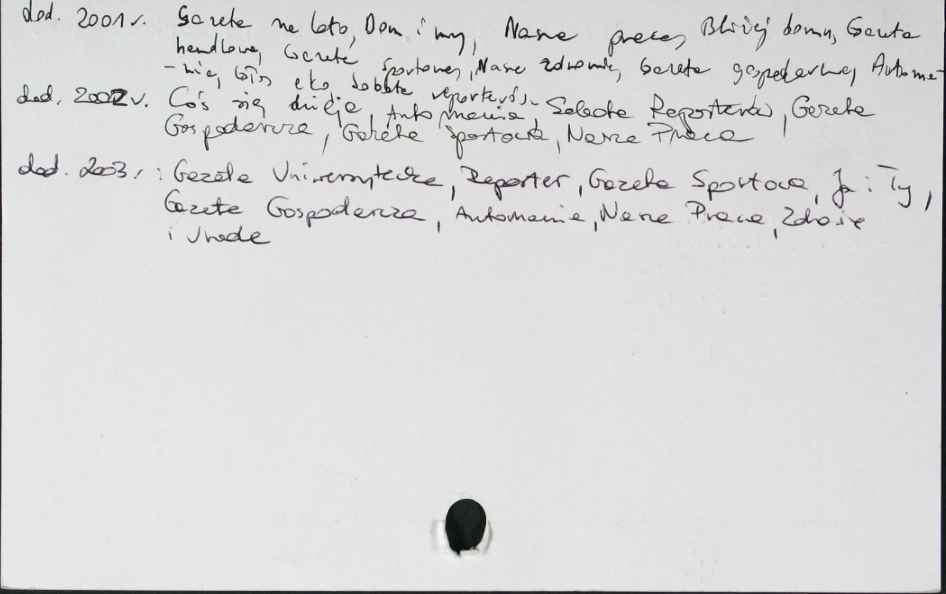 dod. 2001 r. Gazeta na lato, Dom i my, Nasza praca, Bliżej domu, Gazeta
handlowa, Gazeta sportowa, Nasze zdrowie, Gazeta gospodarcza, Automa-
-nia, eko, Sobota reporterów
dod. 2002 r. Coś się dzieje, Automania, Sobota Reporterów, Gazeta
Gospodarcza, Gazeta Sportowa, Nasza Praca
dod. 2003 r. : Gazeta Uniwersytecka, Reporter, Gazeta Sportowa, Ja i Ty,
Gazeta Gospodarcza, Automania, Nasza Praca, Zdrowie
i Uroda